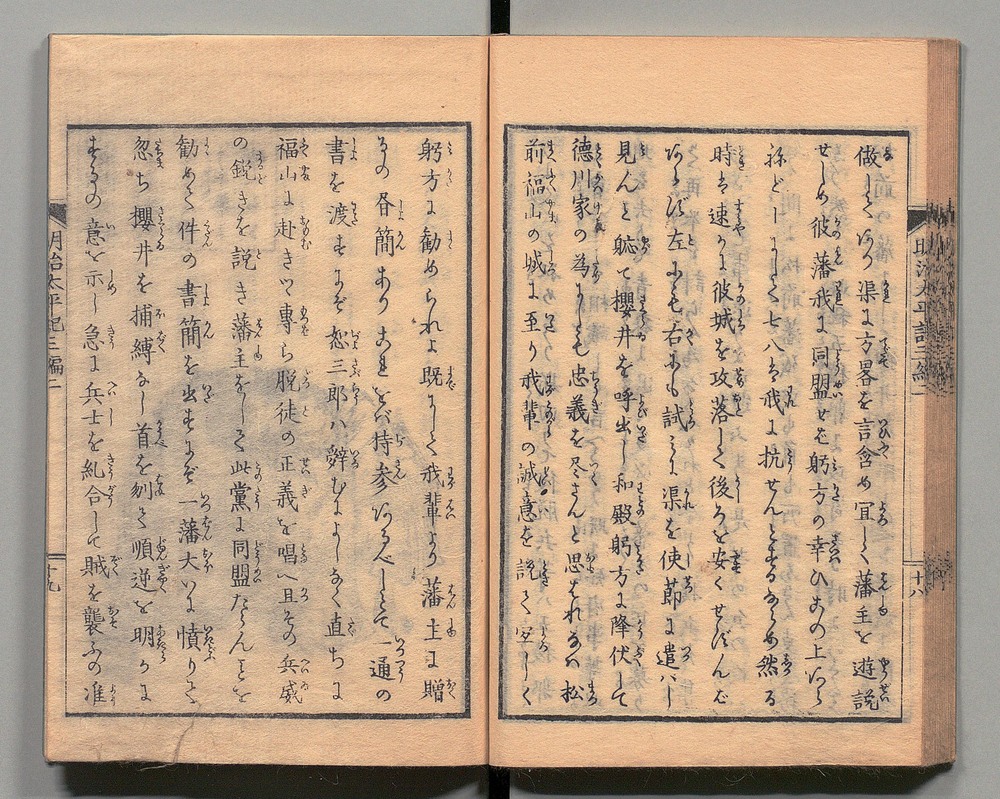 做して渠に方畧を言含め宜しく藩主を遊説
せしめ彼藩我に同盟せバ躬方の幸ひ此の上
時ハ速かに彼城を攻落して後ろを安くせずんバ
左にも右にも試みに渠を使節に遣ハし
見んと軈て櫻井を呼出し和殿躬方に降伏して
徳川家の為にも忠義を尽さんと思ハれなバ松
前福山の城に至り我輩の誠意を説て宜しく
躬方に勧められよ既にして我輩より藩主に贈
るの書簡あり これをバ持参 あるべしとて一通の
書を渡すにぞ恕三郎ハ辞むによしなく直ちに
福山に赴きツ専ら脱徒の正義を唱へ且その兵威
の鋭きを説き藩主をして此黨に同盟たらんことを
勧めて件の書簡を出すにぞ一藩大いに憤りを
忽ち櫻井を捕縛なし首を刎て順逆を明かに
するの意を示し急に兵士を糺合して賊を襲ふの准
明治太平記三編二
十九
十八